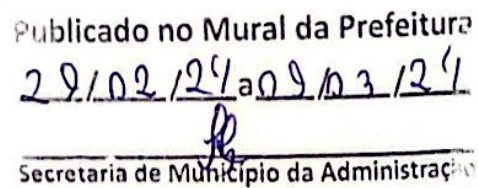 Publicado no Mural da Prefeitura
29/02/24 a 09/03/24
Secretaria de Município da Administração